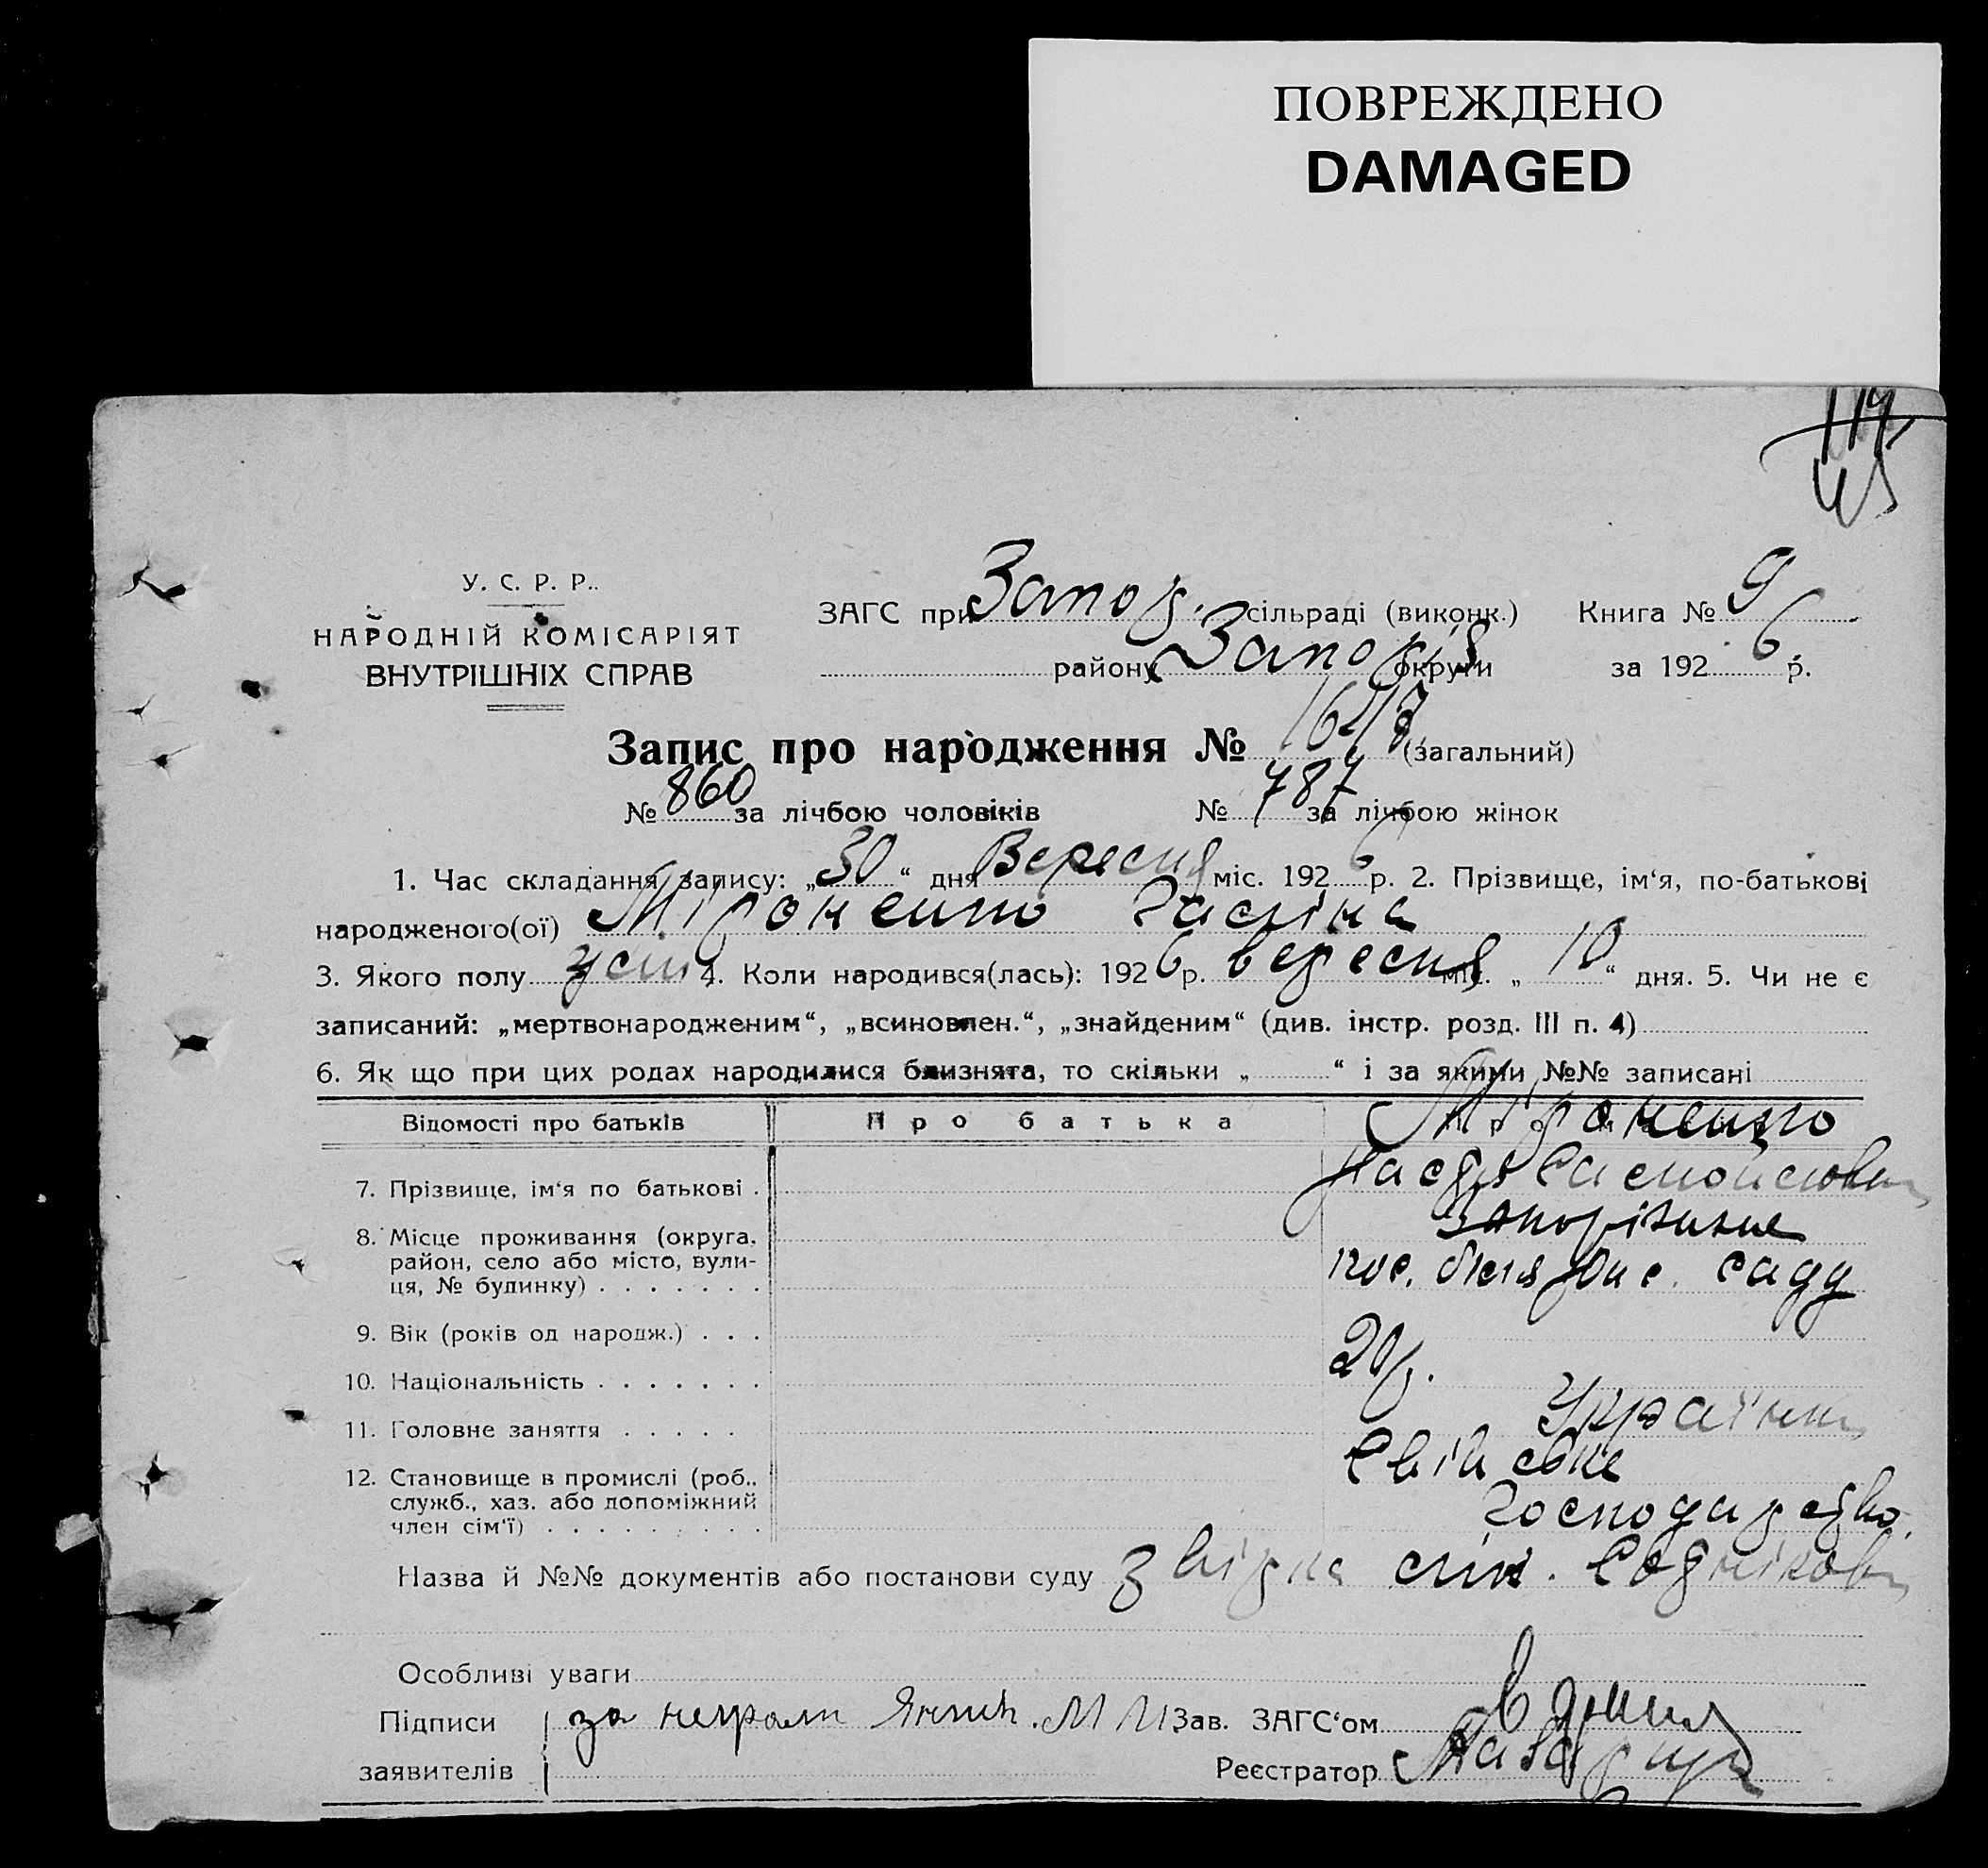 ПОВРЕЖДЕНО
DAMAGED
У. С. Р. Р.
НАРОДНІЙ КОМІСАРІЯТ
ВНУТРІШНІХ СПРАВ
ЗАГС при Запор. сільраді (виконк.) Книга № 9
району Запоріз округи за 1926 р.
Запис про народження № 1647 (загальний)
№ 860 за лічбою чоловіків № 787 за лічбою жінок
1. Час складання запису: „30“ дня Вересня міс. 1926 р. 2. Прізвище, ім‘я, по-батькові
народженого(ої) Міроненко Галіна
3. Якого полу жін 4. Коли народився(лась): 1926 р. вересня міс. „10“ дня. 5. Чи не є
записаний: „мертвонародженим“, „всиновлен.“, „знайденим“ (див. інстр. розд. III п. 4)
6. Як що при цих родах народилися близнята, то скільки „ “ і за якими №№ записані
Відомості про батьків Про батька Міроненко
7. Прізвище, ім‘я по батькові .
8. Місце проживання (округа, Запоріжжє
район, село або місто, вули-
ця, № будинку) . . . . . . . пос. біля саду
9. Вік (років од народж.) . . . 20 р.
10. Національність . . . . . . . Українка
11. Головне заняття . . . . .
12. Становище в промислі (роб.,
служб., хаз. або допоміжний
член сім‘ї) . . . . . . . . . господарство.
Назва й №№ документів або постанови суду
Особливі уваги
Підписи за неграм М И Зав. ЗАГС‘ом
заявителів Реєстратор